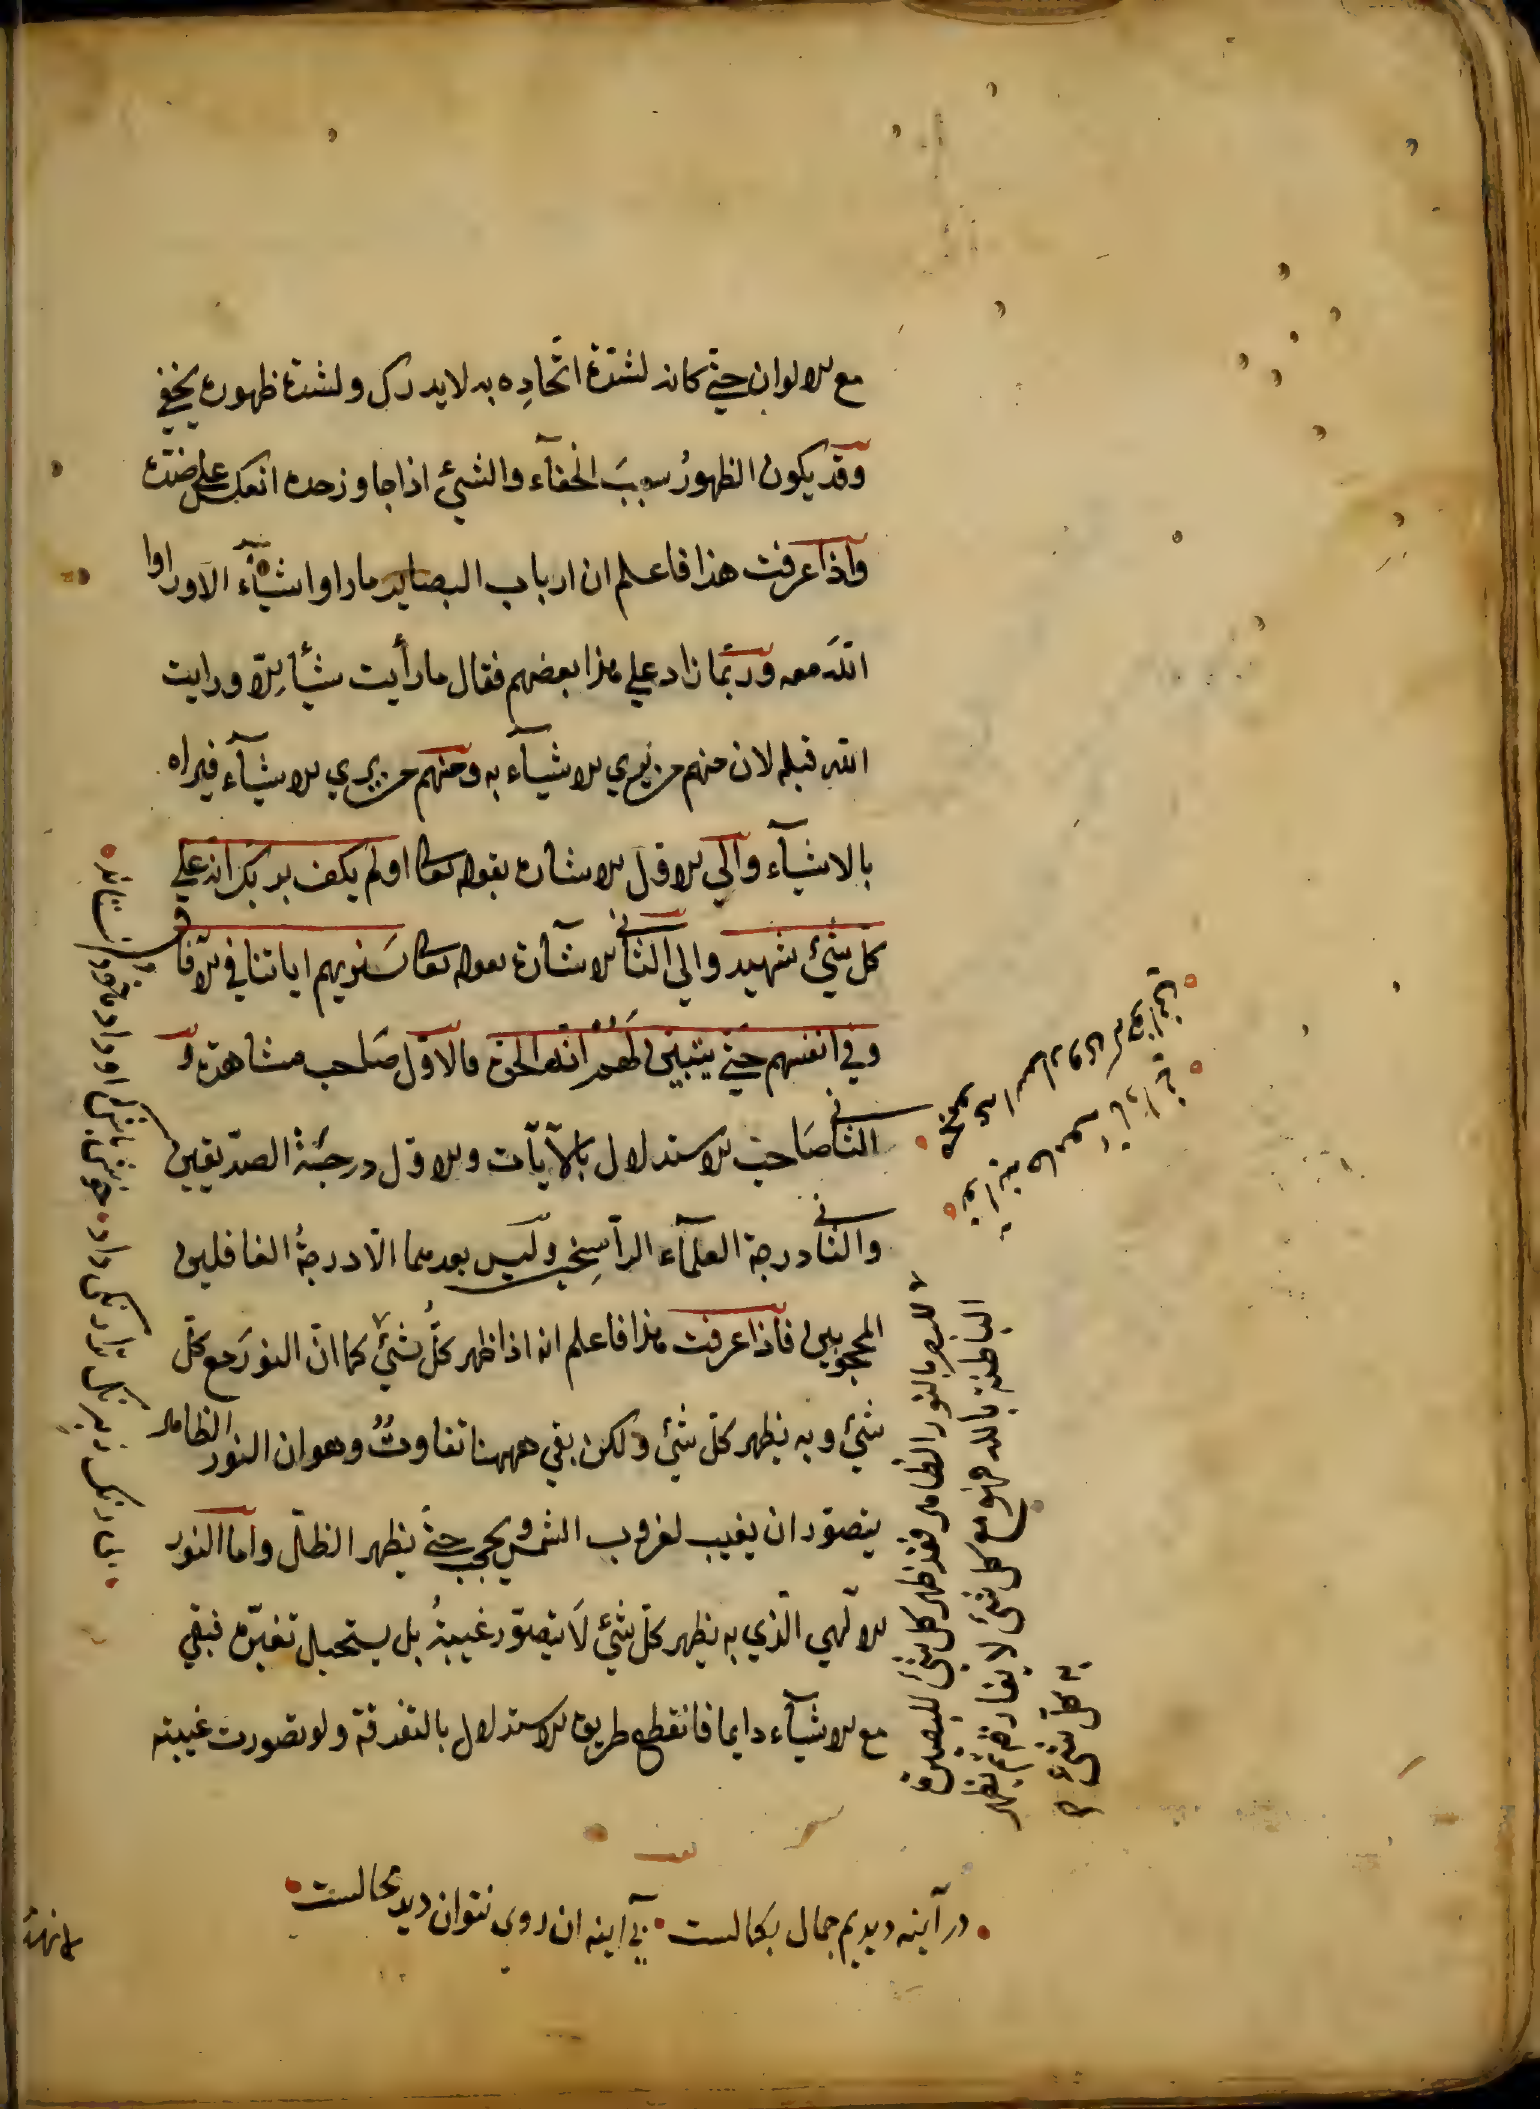 مع الالوان حتي كانه لشدة اتحاده به لا يدرك ولشدة ظهوره يخفي
وقد يكون الظهور سبب الخفآء والشئ اذا جاوز حده انعكس علي ضده
واذا عرفت هذا فاعلم ان ارباب البصاير ما راوا شيأ الا وراوا
الله معه وربما زاد علي هذا بعضهم فقال ما رأيت شيأ الا ورايت
الله قبله لان منهم من يري الاشيآء به ومنهم من يري الاشيآء فيراه
بالاشيآء والي الاول الاشارة بقوله تعا اولم يكف بربك انه علي
كل شئ شهيد والي الثاني الاشآرة بقوله تعا سنريهم اياتنا في الآفاق
وفي انفسهم حتي يتبين لهم انه الحق فالاول صاحب مشاهدة و
الثاني صاحب الاستدلال بالآيآت والاول درجة الصديقين
والثاني درجة العلمآء الرآسخين وليس بعدهما الا درجة الغافلين
المحجوبين فاذا عرفت هذا فاعلم انه اذا ظهر كل شئ كما ان النور مع كل
شئ وبه يظهر كل شئ ولكن بقي ههنا تفاوت وهو ان النور الظاهر
يتصور ان يغيب لغروب الشمس ويحجب حتي يظهر الظل واما النور
الالهي الذي به يظهر كل شئ لا يتصور غيبته بل يستحيل تغيره فبقي
مع الاشيآء دايما فانقطع طريق الاستدلال بالتفرقة ولو تصورت غيبته
للبصر بالنور الظاهر فقد ظهر كل شئ للبصيرة
الباطنة بالله فهو مع كل شئ لا يفارقه ثم يظهر
به كل شئ
در آينه ديديم جمال بكمالست بي آينه ان روي نتوان ديد محالست